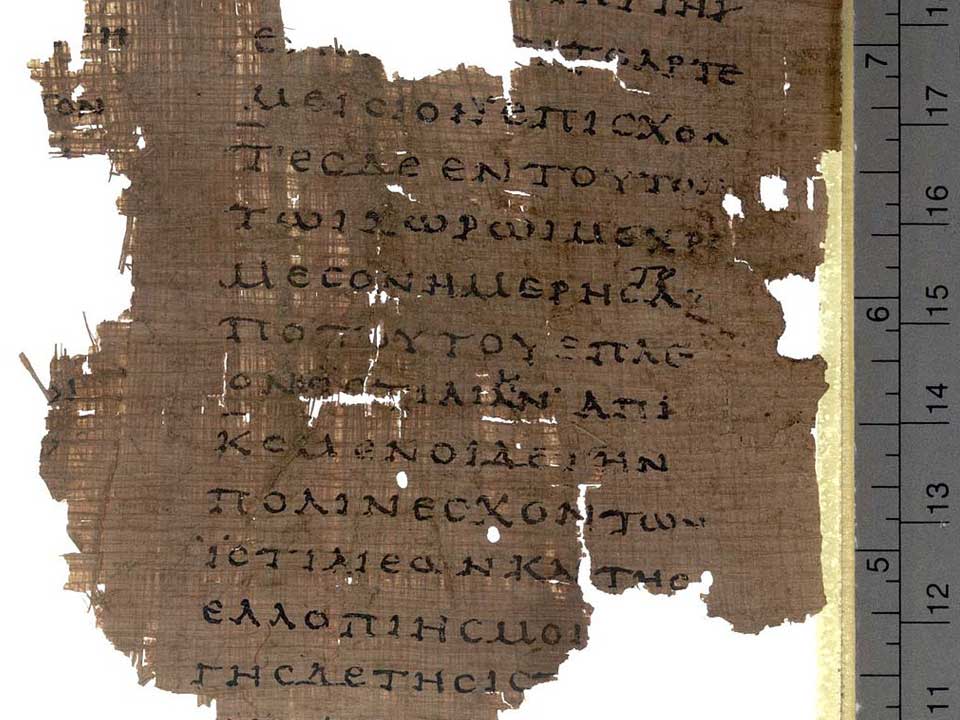 ΤΟΑΡΤΕ
ΜΕΙCΙΟΝΕΠΙCΧΟΝ
ΤΕCΔΕΕΝΤΟΥΤΩΙ
ΤΩΙΧΩΡΩΙΜΕΧΡΙ
ΤΟ
ΜΕCΟΝΗΜΕΡΗCΑ
ΠΟΤΟΥΤΟΥΕΠΛΕ
ΟΝΕCΙCΤΙΑΙΑΝ ΑΠΙ
ΚΟΜΕΝΟΙΔΕΤΗΝ
ΠΟΛΙΝΕCΧΟΝΤΩΝ
ΪCΤΙΑΙΕΩΝΚΑΙΤΗC
ΕΛΛΟΠΙΗCΜΟΙ
ΓΗCΔΕΤΗCΙC
7
6
5
17
16
15
14
13
12
11